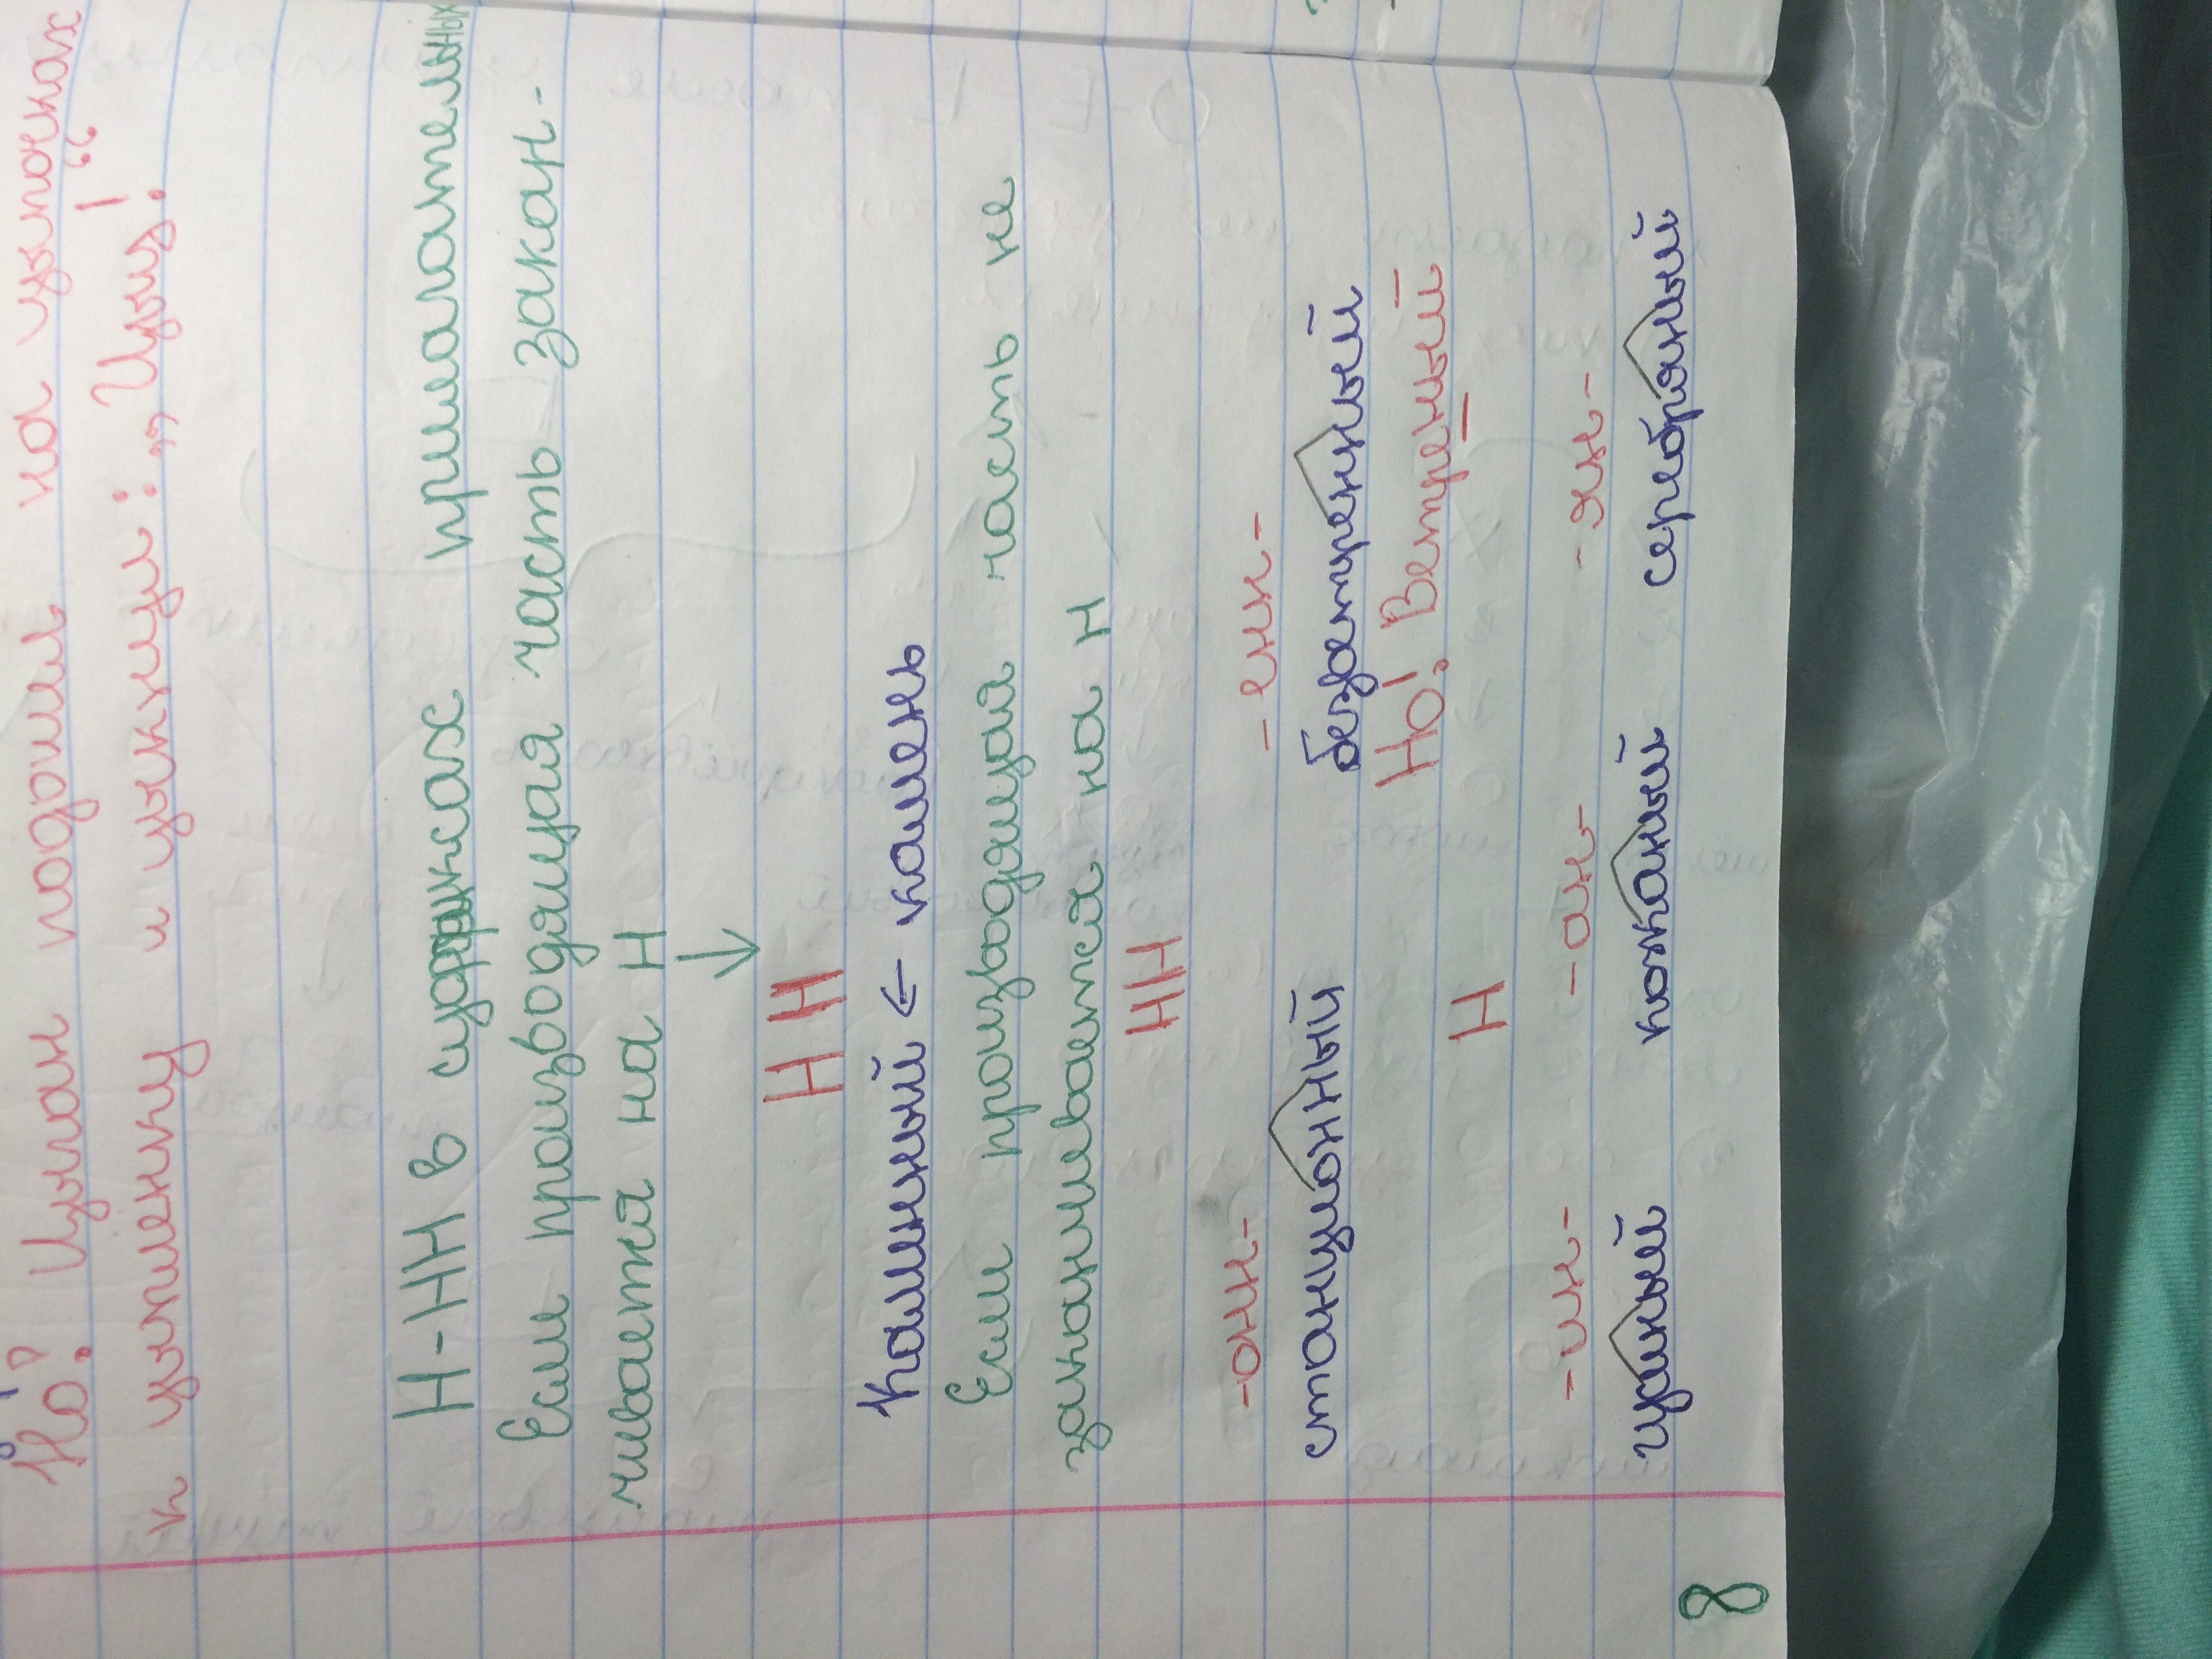 Но! Цыган подошёл на цыпочках
к цыплёнку и цыкнул: „Цыц!“
Н-НН в суффиксах прилагательных
Если производящая часть закан-
чивается на Н
↓
НН
Каменный ← камень
Если производящая часть не
заканчивается на Н
НН
-онн- -енн-
станционный безветренный
Но! Ветреный
Н
-ин- -ан- -ян-
кожаный серебряный
8